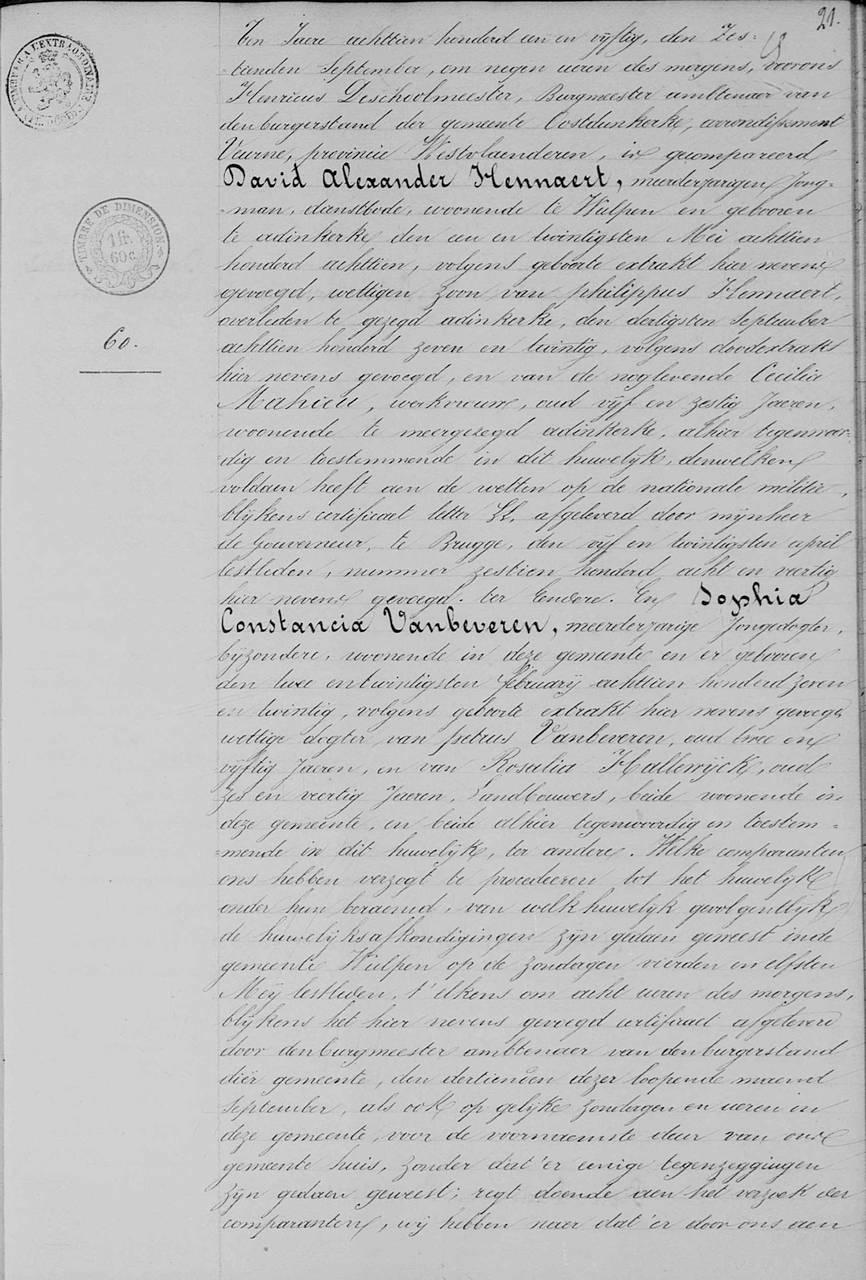 21.
TIMBRE A L'EXTRAORDINAIRE
Ten Jaere achttien honderd een en vijftig, den Zes-
tienden September, om negen ueren des morgens, voorons
Henricus Deschoolmeester, Burgmeester ambtenaer van
denburgerstand der gemeente Oostdunkerke, arrondissement
Veurne, provincie Westvlaenderen, is gecompareerd
David Alexander Hennaert, meerderjarigen Jong-
-man, dienstbode, woonende te Wulpen en gebooren
te adinkerke den een en twintigsten Mei achttien
honderd achttien, volgens geboorte extrakt hier nevens
gevoegd, wettigen zoon van philippus Hennaert,
overleden te gezegd adinkerke, den dertigsten September
achttien honderd zeven en twintig, volgens doodextrakt
hier nevens gevoegd, en van de noglevende Cecilia
Mahieu, werkvrouw, oud vijf en zestig Jaeren,
woonende te meergezegd adinkerke, alhier tegenwoor-
dig en toestemmende in dit huwelijk, denwelken
voldaen heeft aen de wetten op de nationale militie,
blijkens certificaet letter LL, afgeleverd door mijnheer
de Gouverneur, te Brugge, den vijf en twintigsten april
lestleden, nummer zestien honderd acht en veertig
hier nevens gevoegd. ter Eendere. En Sophia
Constancia Vanbeveren, meerderjarige Jongedogter,
bijzondere, woonende in deze gemeente en er gebooren
den twee entwintigsten februarij achttien honderd zeven
en twintig, volgens geboorte extrakt hier nevens gevoegd
wettige dogter van petrus Vanbeveren, oud twee en
vijftig Jaeren, en van Rosalia Hallewijck, oud
zes en veertig Jaeren, Landbouwers, beide woonende in
deze gemeente, en beide alhier tegenwoordig en toestem-
-mende in dit huwelijk, ter andere. Welke comparanten
ons hebben verzogt te procedeeren tot het huwelijk
onder hun beraemd, van welk huwelijk gevolgentlijk
de huwelijksafkondigingen zijn gedaen geweest inde
gemeente Wulpen op de zondagen vierden en elfsten
Meij lestleden, t'elkens om acht ueren des morgens,
blijkens het hier nevens gevoegd certificaet afgeleverd
door denburgmeester ambtenaer van denburgerstand
dier gemeente, den dertienden dezer loopende maend
September, als ook op gelijke zondagen en ueren in
deze gemeente, voor de voornaemste deur van ons
gemeente huis, zonder dat'er eenige tegenzeggingen
zijn gedaen geweest; regt doende aen het verzoek der
comparanten, wij hebben naer dat'er door ons aen
TIMBRE DE DIMENSION
1 fr.
60 c.
60.